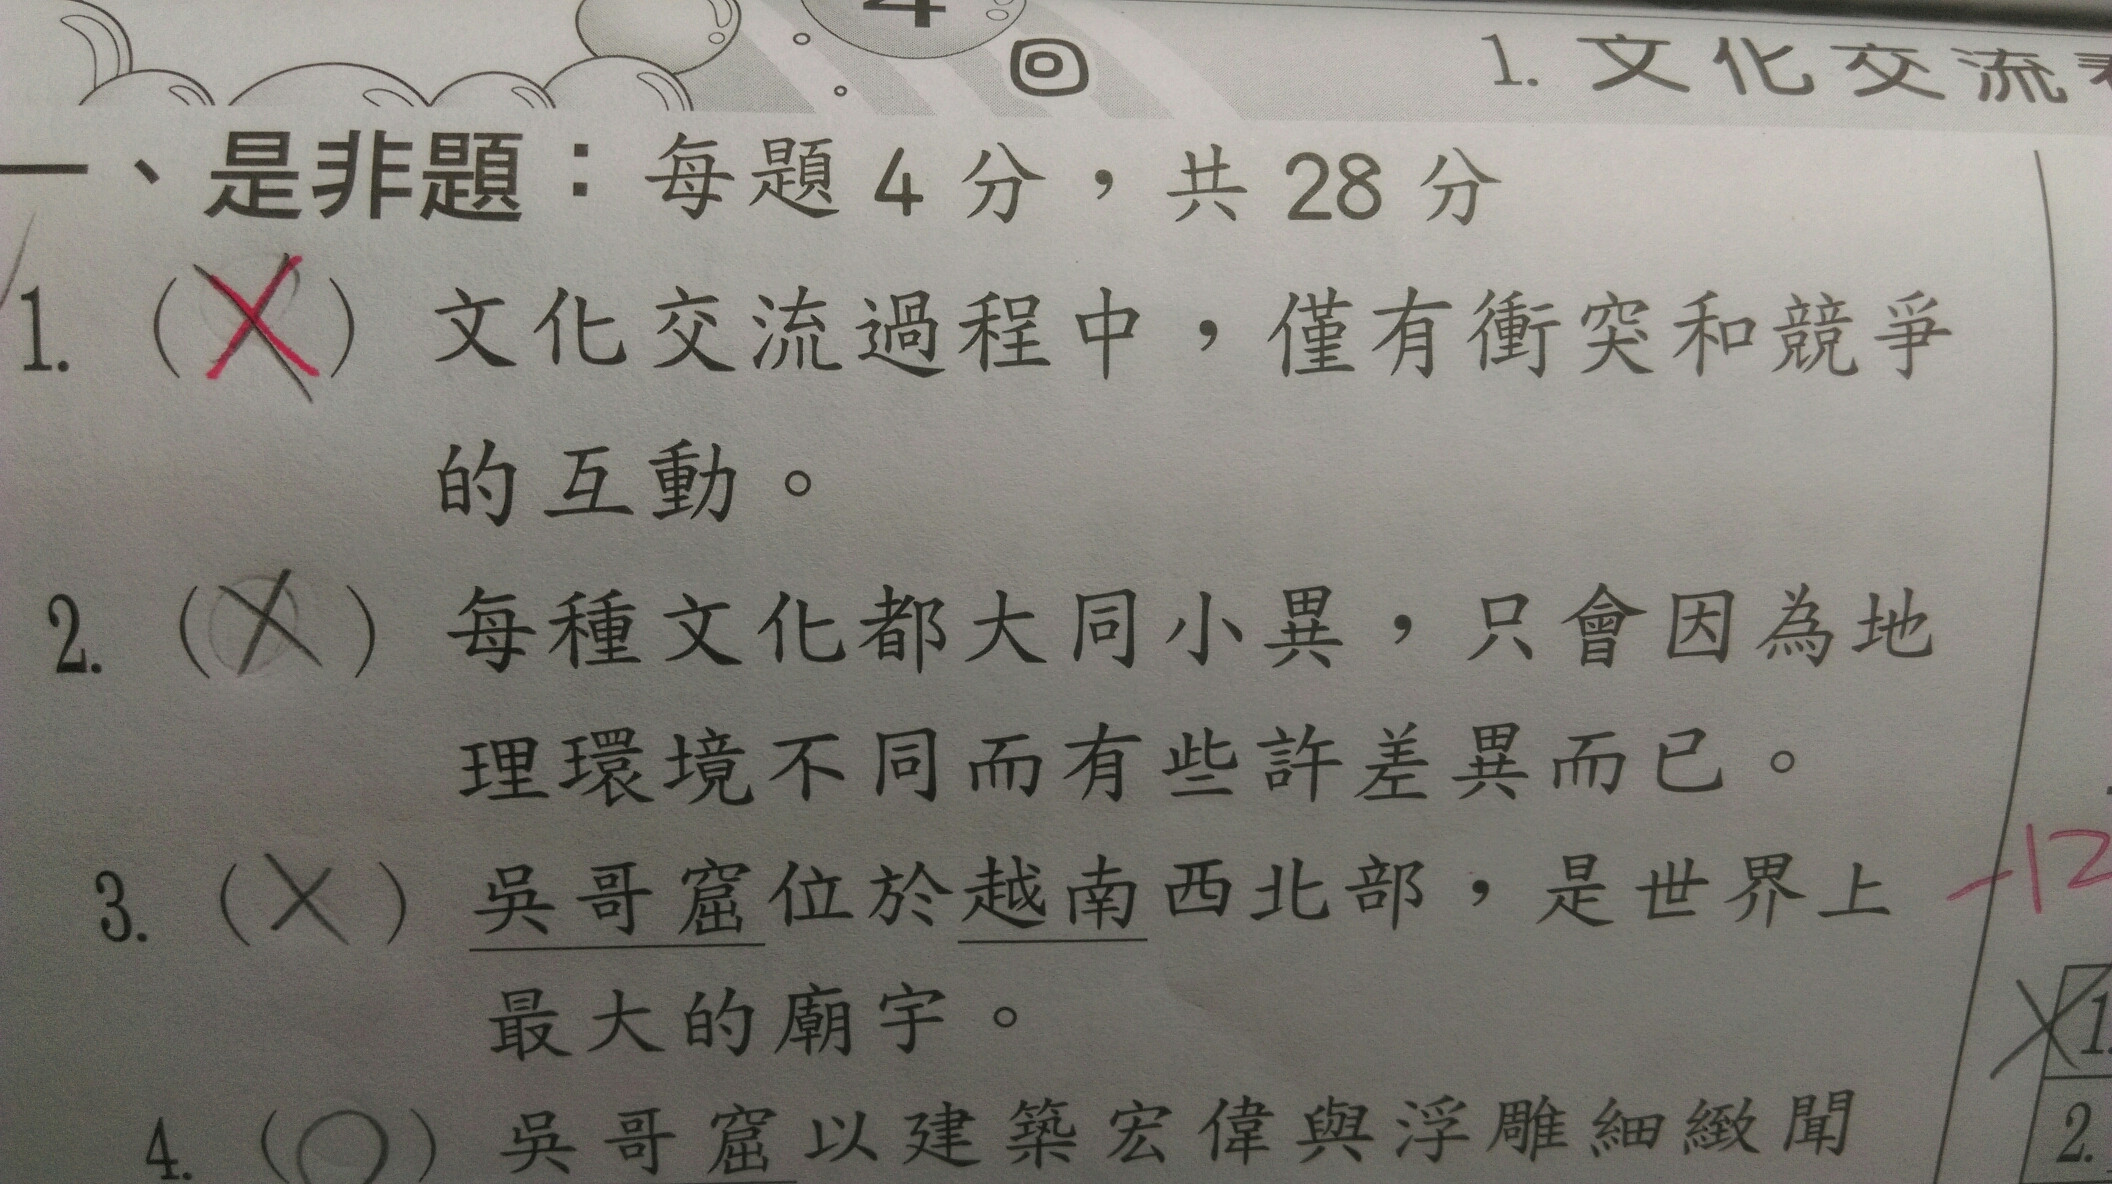 4
回
1. 文化交流
一、是非題：每題 4 分，共 28 分
1. (X) 文化交流過程中，僅有衝突和競爭
的互動。
2. (X) 每種文化都大同小異，只會因為地
理環境不同而有些許差異而已。
3. (X) 吳哥窟位於越南西北部，是世界上
最大的廟宇。
4. (○) 吳哥窟以建築宏偉與浮雕細緻聞
-12
1.
2.